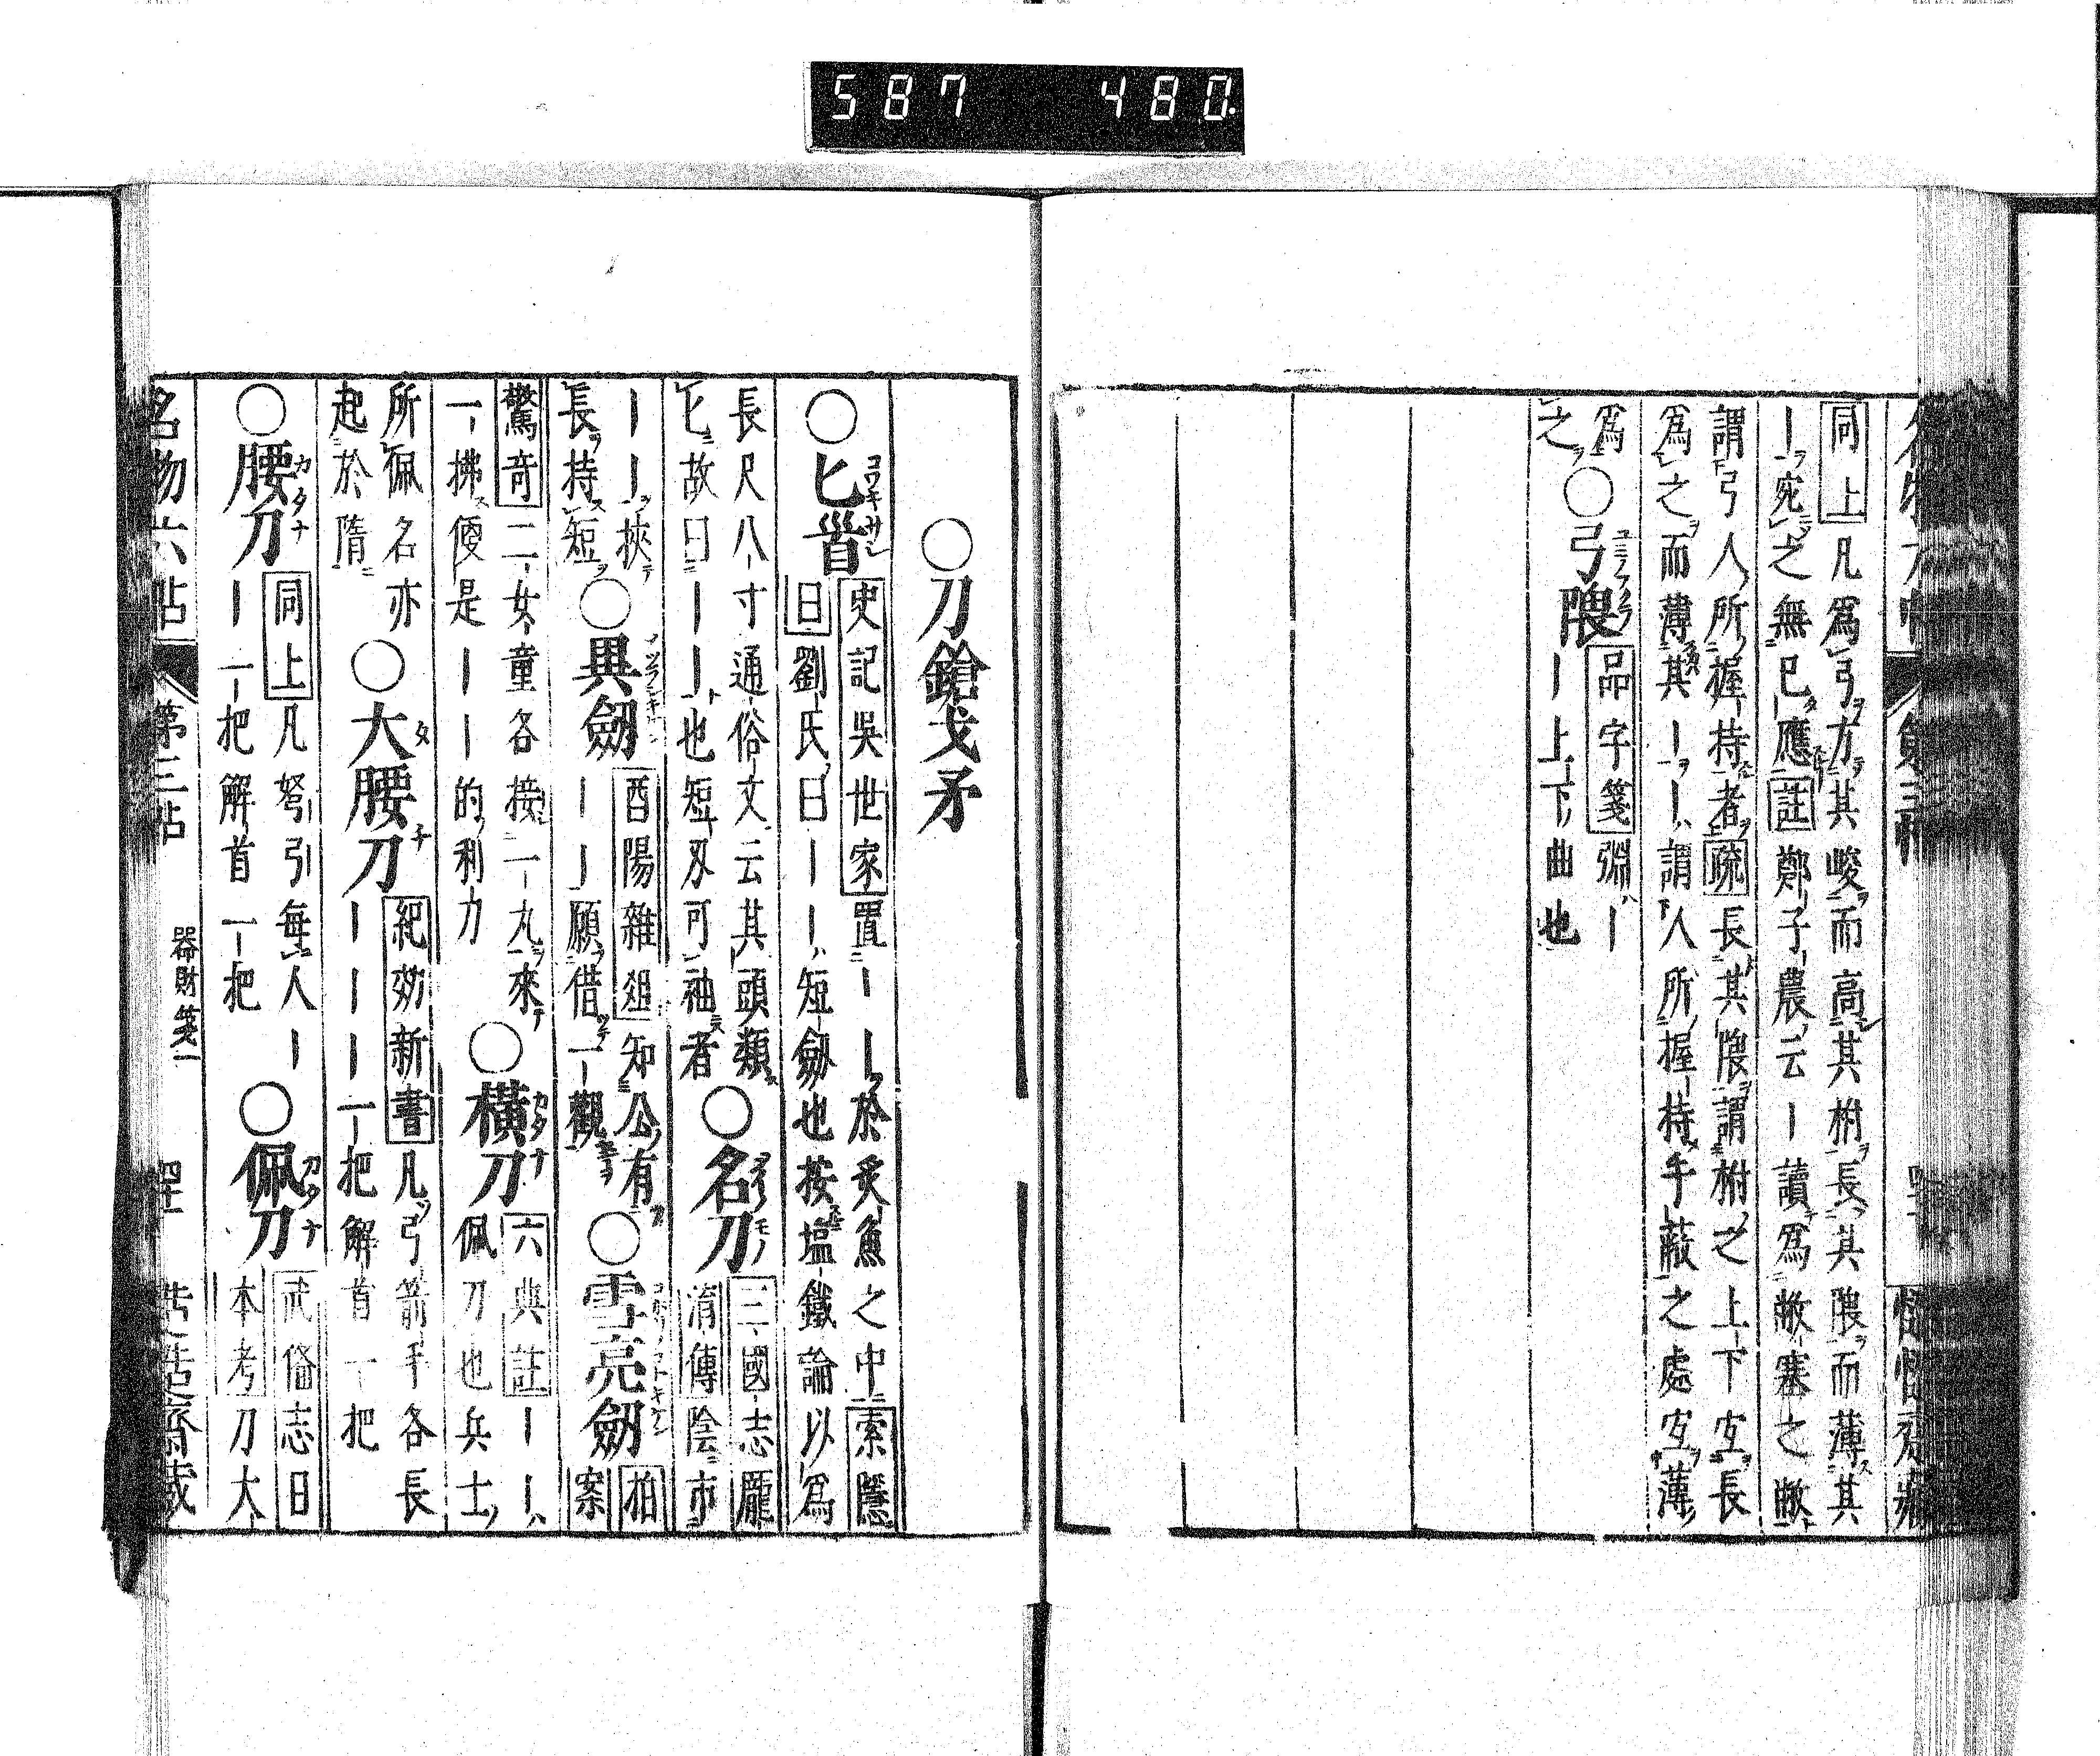 587 480
同上凡爲弓方其峻而高其柎長其隈而薄其
丨宛之無已應註鄭子農云丨讀爲敝塞之敝
謂弓人所握持者疏長其隈謂柎之上下宜長
爲之而薄其丨丨謂人所握持手蔽之處宜薄
爲
之
○弓隈
品字箋淵丨
丨上下曲也
○刀鎗戈矛
○匕首
コワキサシ
史記吳世家置丨丨於炙魚之中索隱
曰劉氏曰丨丨短劔也按塩鐵論以爲
長尺八寸通俗文云其頭類
匕故曰丨丨也短刄可袖者
○名刀
三國志龐
淯傳陰市
丨丨挾
長持短
○異劔
酉陽雜爼知公有
丨丨願借一觀
○雪亮劔
拍案
驚奇二女童各接一丸來
一拂便是丨丨的利力
○橫刀
カタナ
六典註丨丨
佩刀也兵士
所佩名亦
起於隋
○大腰刀
タチ
紀効新書凡弓箭手各長
丨丨丨一把解首一把
○腰刀
カタナ
同上凡弩引每人丨
丨一把解首一把
○佩刀
カタナ
武俻志曰
本考刀大
名物六帖
第三帖
器財箋一